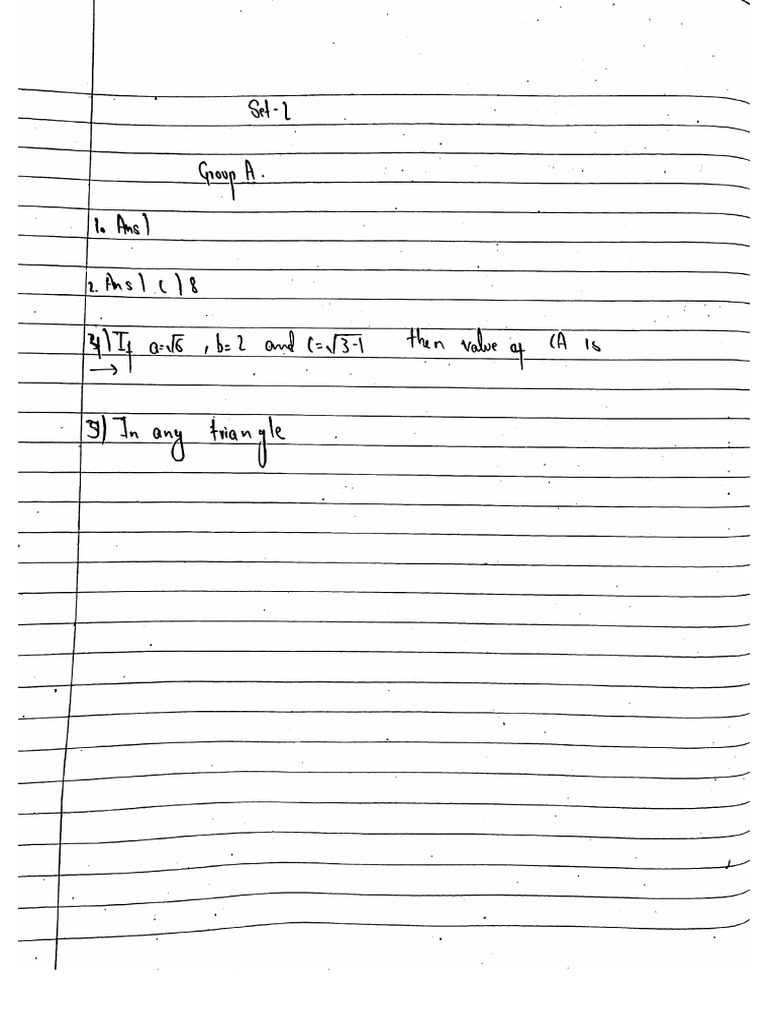 Set-2
Group A.
1. Ans)
2. Ans) c) 8
4) If a=√6 , b=2 and c=√3-1 then value of CA is
→
5) In any triangle